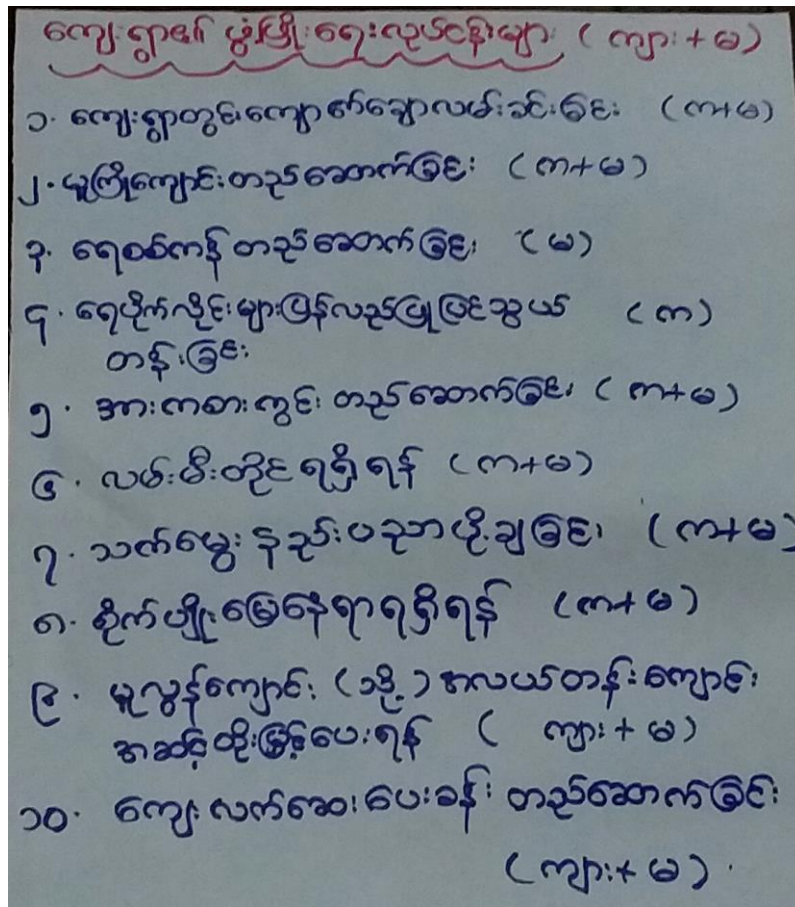 ကျေးရွာ၏ ဖွံ့ဖြိုးရေးလုပ်ငန်းများ (ကျား + မ)
၁. ကျေးရွာတွင်းကျောက်ချောလမ်းခင်းခြင်း (က+မ)
၂. မူကြိုကျောင်းတည်ဆောက်ခြင်း (က+မ)
၃. ရေစစ်ကန် တည်ဆောက်ခြင်း (မ)
၄. ရေပိုက်လိုင်းများပြန်လည်ပြုပြင်သွယ် (က)
တန်းခြင်း
၅. အားကစားကွင်း တည်ဆောက်ခြင်း (က+မ)
၆. လမ်းမီးတိုင် ရရှိရန် (က+မ)
၇. သက်မွေး နည်းပညာပို့ချခြင်း (က+မ)
၈. စိုက်ပျိုးမြေနေရာရရှိရန် (က+မ)
၉. မူလွန်ကျောင်း (သို့) အလယ်တန်းကျောင်း
အဆင့်တိုးမြှင့်ပေးရန် (ကျား + မ)
၁၀. ကျေးလက်ဆေးပေးခန်း တည်ဆောက်ခြင်း
(ကျား + မ).